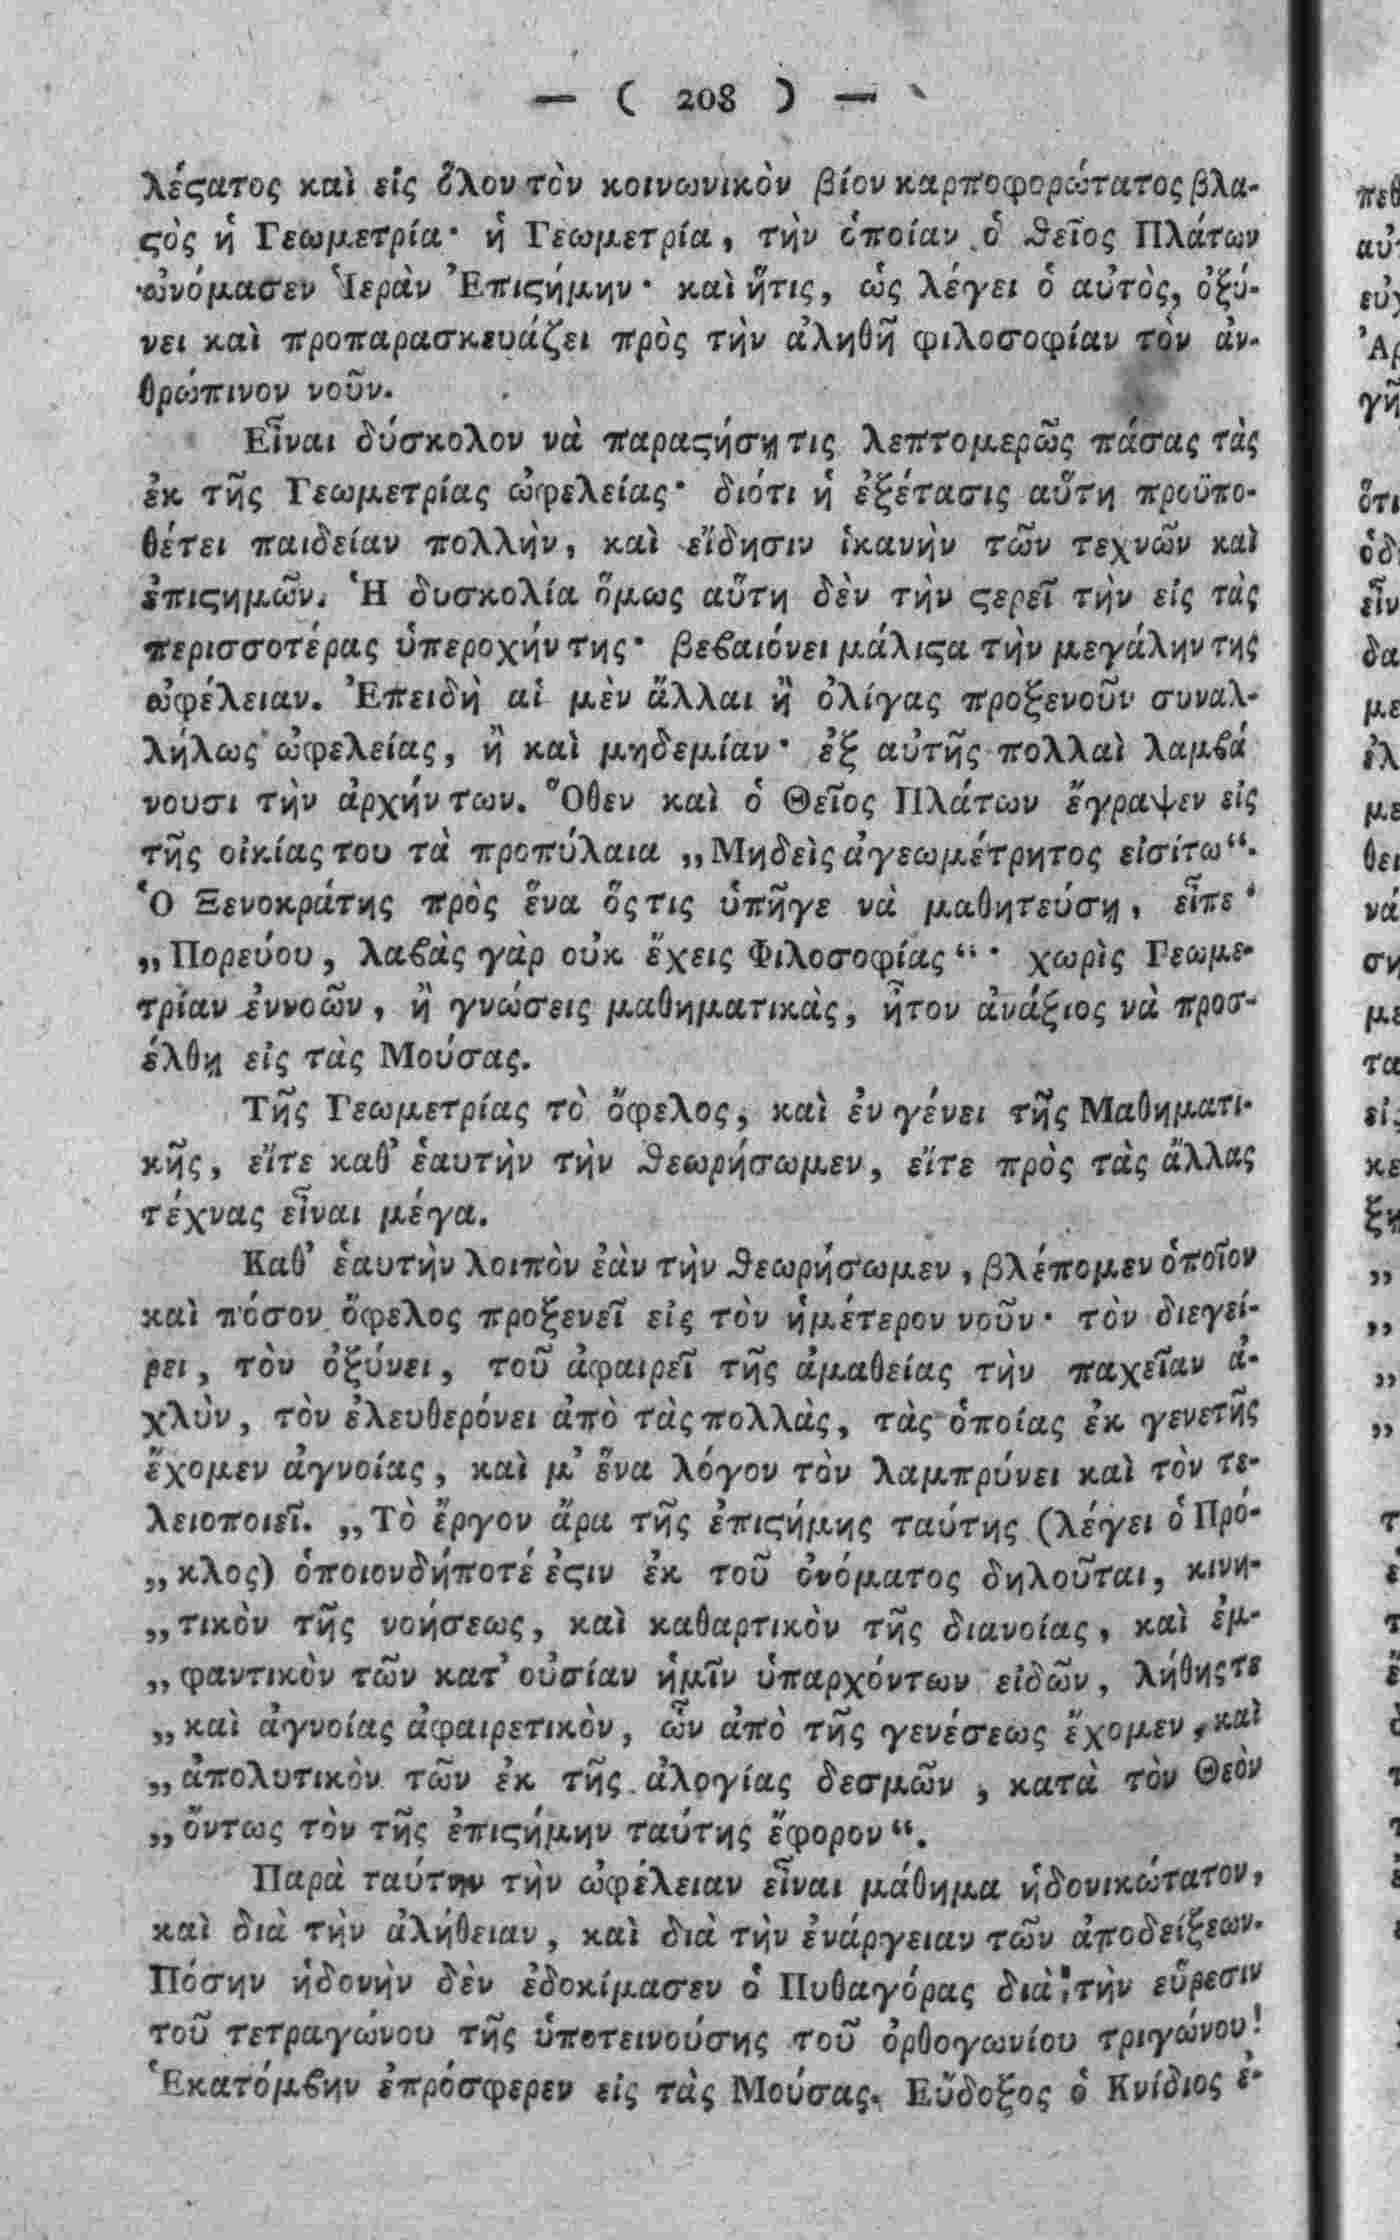 — ( 208 ) —
λέϛατος καὶ εἰς ὅλον τὸν κοινωνικὸν βίον καρποφορώτατος βλα-
ϛὸς ἡ Γεωμετρία· ἡ Γεωμετρία, τὴν ὁποίαν ὁ ϑεῖος Πλάτων
ὠνόμασεν Ἱερὰν Ἐπιϛήμην· καὶ ἥτις, ὡς λέγει ὁ αὐτὸς, ὀξύ-
νει καὶ προπαρασκευάζει πρὸς τὴν ἀληθῆ φιλοσοφίαν τὸν ἀν-
θρώπινον νοῦν.
Εἶναι δύσκολον νὰ παραϛήσῃ τις λεπτομερῶς πάσας τὰς
ἐκ τῆς Γεωμετρίας ὠφελείας· διότι ἡ ἐξέτασις αὕτη προϋπο-
θέτει παιδείαν πολλὴν, καὶ εἴδησιν ἱκανὴν τῶν τεχνῶν καὶ
ἐπιϛημῶν. Ἡ δυσκολία ὅμως αὕτη δὲν τὴν ϛερεῖ τὴν εἰς τὰς
περισσοτέρας ὑπεροχήν της· βεϐαιόνει μάλιϛα τὴν μεγάλην της
ὠφέλειαν. Ἐπειδὴ αἱ μὲν ἄλλαι ἢ ὀλίγας προξενοῦν συναλ-
λήλως ὠφελείας, ἢ καὶ μηδεμίαν· ἐξ αὐτῆς πολλαὶ λαμϐά
νουσι τὴν ἀρχήν των. Ὅθεν καὶ ὁ Θεῖος Πλάτων ἔγραψεν εἰς
τῆς οἰκίας του τὰ προπύλαια „Μηδεὶς ἀγεωμέτρητος εἰσίτω“.
Ὁ Ξενοκράτης πρὸς ἕνα ὅϛτις ὑπῆγε νὰ μαθητεύσῃ, εἶπε·
„Πορεύου, λαϐὰς γὰρ οὐκ ἔχεις Φιλοσοφίας“· χωρὶς Γεωμε-
τρίαν ἐννοῶν, ἢ γνώσεις μαθηματικὰς, ἦτον ἀνάξιος νὰ προσ-
έλθῃ εἰς τὰς Μούσας.
Τῆς Γεωμετρίας τὸ ὄφελος, καὶ ἐν γένει τῆς Μαθηματι-
κῆς, εἴτε καθ’ ἑαυτὴν τὴν ϑεωρήσωμεν, εἴτε πρὸς τὰς ἄλλας
τέχνας εἶναι μέγα.
Καθ’ ἑαυτὴν λοιπὸν ἐὰν τὴν ϑεωρήσωμεν, βλέπομεν ὁποῖον
καὶ πόσον ὄφελος προξενεῖ εἰς τὸν ἡμέτερον νοῦν· τὸν διεγεί-
ρει, τὸν ὀξύνει, τοῦ ἀφαιρεῖ τῆς ἀμαθείας τὴν παχεῖαν ἀ-
χλὺν, τὸν ἐλευθερόνει ἀπὸ τὰς πολλὰς, τὰς ὁποίας ἐκ γενετῆς
ἔχομεν ἀγνοίας, καὶ μ’ ἕνα λόγον τὸν λαμπρύνει καὶ τὸν τε-
λειοποιεῖ. „Τὸ ἔργον ἄρα τῆς ἐπιϛήμης ταύτης (λέγει ὁ Πρό-
„κλος) ὁποιονδήποτέ ἐϛιν ἐκ τοῦ ὀνόματος δηλοῦται, κινη-
„τικὸν τῆς νοήσεως, καὶ καθαρτικὸν τῆς διανοίας, καὶ ἐμ-
„φαντικὸν τῶν κατ’ οὐσίαν ἡμῖν ὑπαρχόντων εἰδῶν, λήθης τε
„καὶ ἀγνοίας ἀφαιρετικὸν, ὧν ἀπὸ τῆς γενέσεως ἔχομεν, καὶ
„ἀπολυτικὸν τῶν ἐκ τῆς ἀλογίας δεσμῶν, κατὰ τὸν Θεὸν
„ὄντως τὸν τῆς ἐπιϛήμην ταύτης ἔφορον“.
Παρὰ ταύτην τὴν ὠφέλειαν εἶναι μάθημα ἡδονικώτατον,
καὶ διὰ τὴν ἀλήθειαν, καὶ διὰ τὴν ἐνάργειαν τῶν ἀποδείξεων.
Πόσην ἡδονὴν δὲν ἐδοκίμασεν ὁ Πυθαγόρας διὰ τὴν εὕρεσιν
τοῦ τετραγώνου τῆς ὑποτεινούσης τοῦ ὀρθογωνίου τριγώνου!
Ἑκατόμϐην ἐπρόσφερεν εἰς τὰς Μούσας. Εὔδοξος ὁ Κνίδιος ἐ-